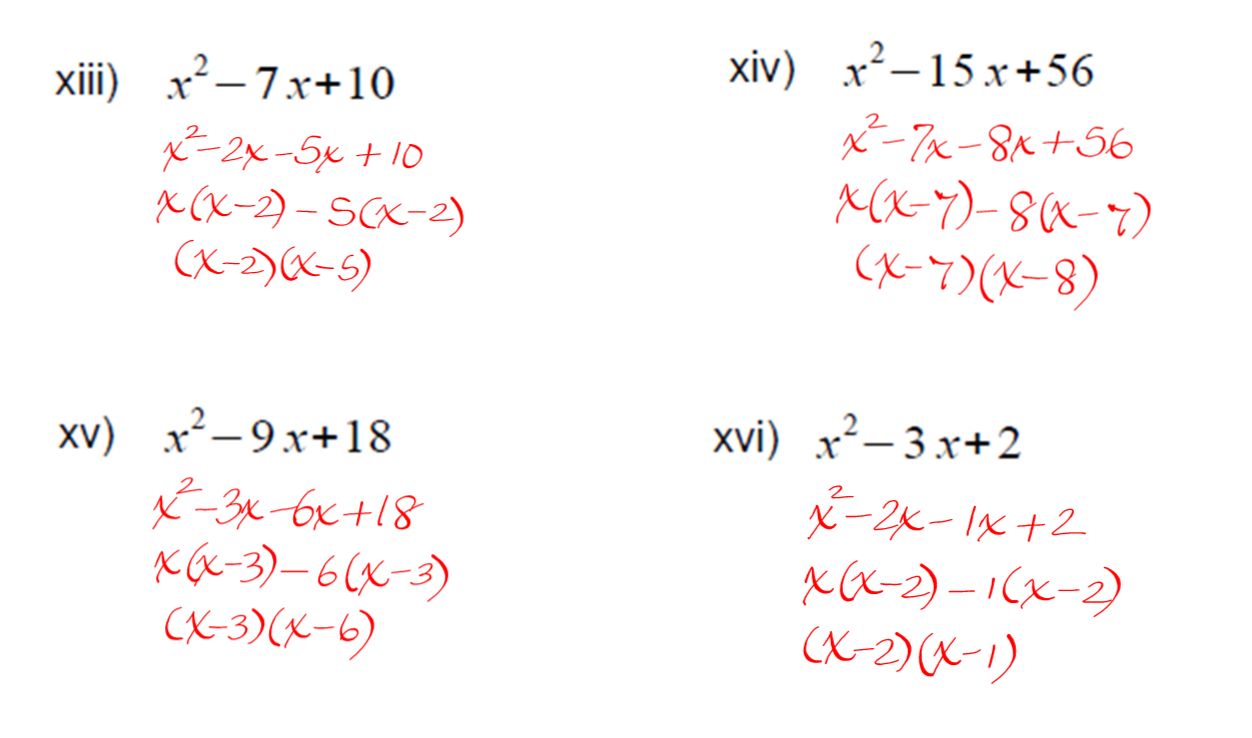 xiii) x² − 7x+10
x²−2x−5x+10
x(x−2)−5(x−2)
(x−2)(x−5)
xiv) x² − 15x+56
x²−7x−8x+56
x(x−7)−8(x−7)
(x−7)(x−8)
xv) x² − 9x+18
x²−3x−6x+18
x(x−3)−6(x−3)
(x−3)(x−6)
xvi) x² − 3x+2
x²−2x−1x+2
x(x−2)−1(x−2)
(x−2)(x−1)